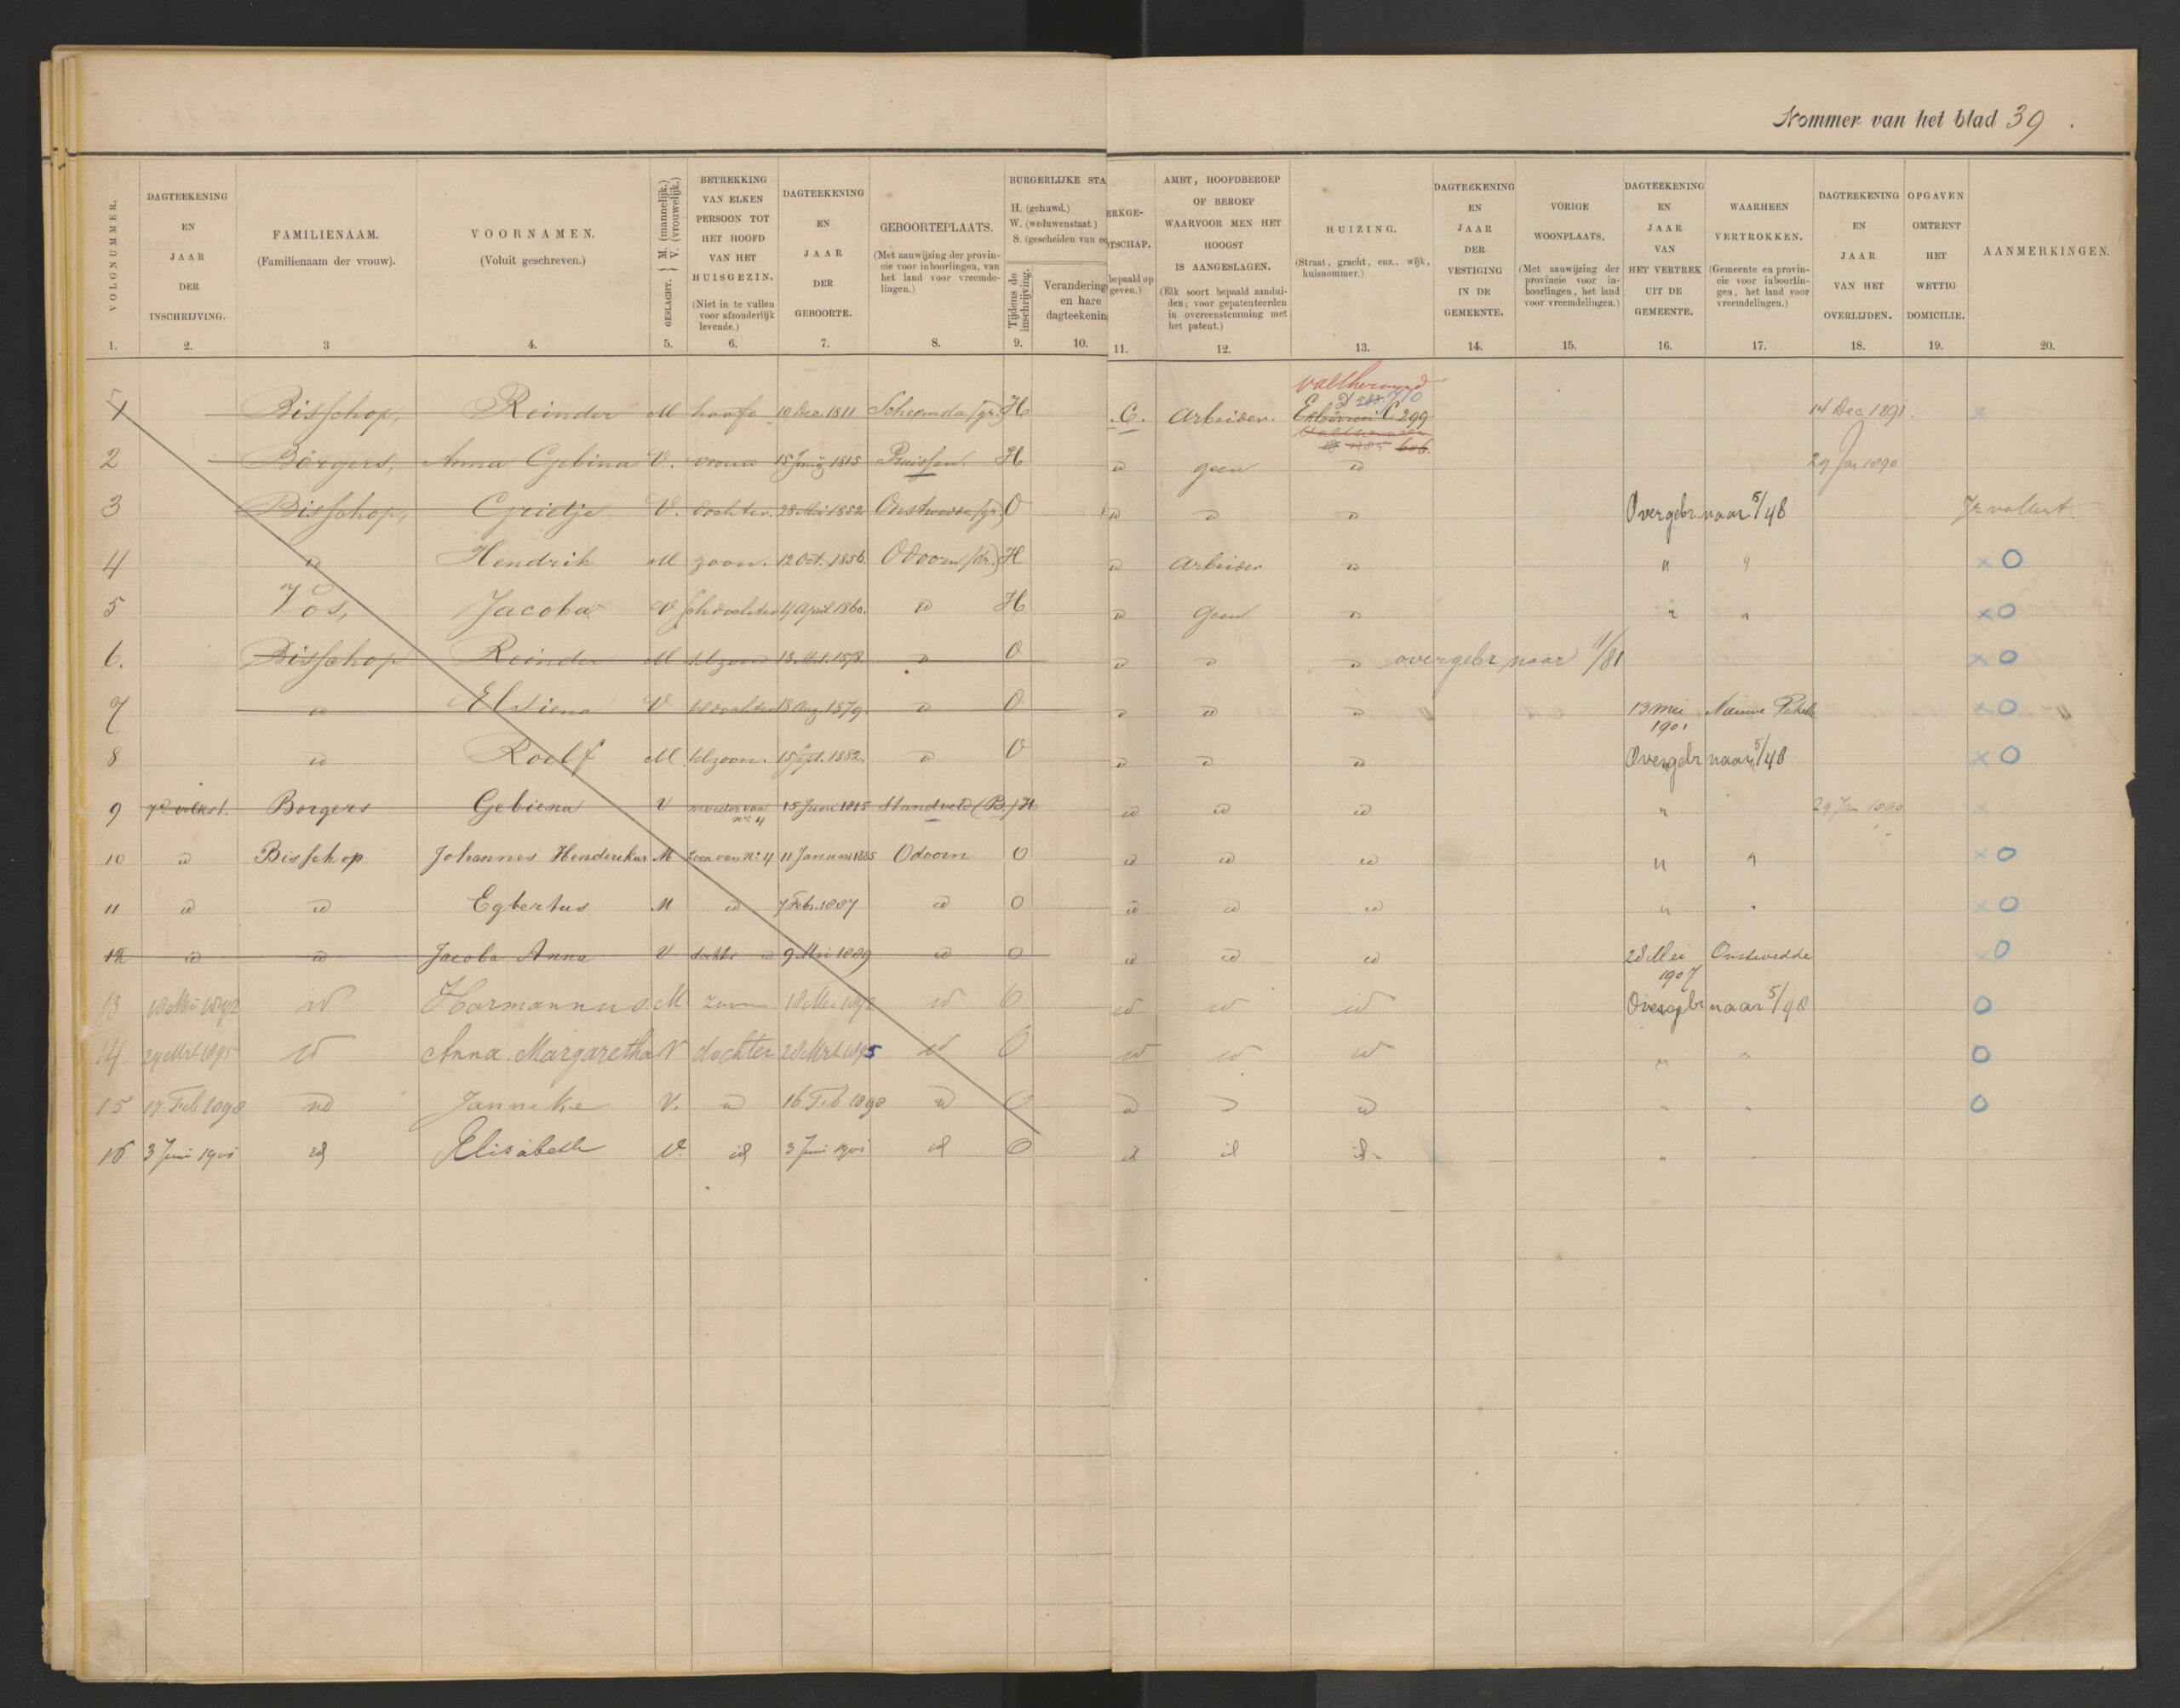 Nommer van het blad 39.
VOLGNUMMER. DAGTEEKENING EN JAAR DER INSCHRIJVING. FAMILIENAAM. (Familienaam der vrouw). VOORNAMEN. (Voluit geschreven.) GESLACHT. M. (mannelijk.) V. (vrouwelijk.) BETREKKING VAN ELKEN PERSOON TOT HET HOOFD VAN HET HUISGEZIN. (Niet in te vullen voor afzonderlijk levende.) DAGTEEKENING EN JAAR DER GEBOORTE. GEBOORTEPLAATS. (Met aanwijzing der provincie voor inboorlingen, van het land voor vreemdelingen.) BURGERLIJKE STA H. (gehuwd.) W. (weduwenstaat.) S. (gescheiden van ec Tijdens de inschrijving. Verandering en hare dagteekenin
ERKGE- OTSCHAP. bepaald op geven.) AMBT, HOOFDBEROEP OF BEROEP WAARVOOR MEN HET HOOGST IS AANGESLAGEN. (Elk soort bepaald aanduiden; voor gepatenteerden in overeenstemming met het patent.) HUIZING. (Straat, gracht, enz., wijk, huisnommer.) DAGTEEKENING EN JAAR DER VESTIGING IN DE GEMEENTE. VORIGE WOONPLAATS. (Met aanwijzing der provincie voor inboorlingen, het land voor vreemdelingen.) DAGTEEKENING EN JAAR VAN HET VERTREK UIT DE GEMEENTE. WAARHEEN VERTROKKEN. (Gemeente en provincie voor inboorlingen, het land voor vreemdelingen.) DAGTEEKENING EN JAAR VAN HET OVERLIJDEN. OPGAVEN OMTRENT HET WETTIG DOMICILIE. AANMERKINGEN.
1. 2. 3 4. 5. 6. 7. 8. 9. 10. 11. 12. 13. 14. 15. 16. 17. 18. 19. 20.
Valthermond
D 710
1 Bisschop, Reinder M hoofd 10 Dec. 1811 Scheemda (gr.) H C. Arbeider. Exloërveen C 299 14 Dec 1891.
606.
2 Börgers, Anna Gebina V. vrouw 15 Junij 1815 Pruissen. H id geen id 29 Jan 1890
3 Bisschop, Grietje V. dochter. 28 Mei 1852 Onstwedde (gr.) O id id id Overgebr. naar 5/48
4 id Hendrik M zoon. 12 Oct. 1856 Odoorn (dr.) H id Arbeider id " " x O
5 Vos, Jacoba V schdochter 4 April 1860. id H id Geen id " " x O
6. Bisschop Reinder M klzoon id O id id id overgebr naar 11/81 x O
7 id Elsiena V kldochter 18 Aug. 1879. id O id id id 13 Mei 1901 Nieuwe Pekela x O
8 id Roelf M klzoon. 15 Sept. 1882. id O id id id Overgebr naar 5/48 x O
9 7e volkst. Borgers Gebiena V moeder van no 4 15 Juni 1815 H id id id " 29 Jan 1890 x
10 id Bisschop Johannes Henderikus M zoon van No 4 11 Januari 1885 Odoorn O id id id " " x O
11 id id Egbertus M id 7 Febr. 1887 id O id id id " " x O
12 id id Jacoba Anna V dochter id 9 Mei 1889 id O id id id 28 Mei 1907 Onstwedde x O
13 18 Mei 1892 id Harmannus M. zoon 18 Mei 1892 id O id id id Overgebr naar 5/98 O
14. 29 Mrt 1895 id Anna Margaretha V dochter 28 Mrt 1895 id O id id id " " O
15 17 Feb 1898 id Janneke V. id 16 Feb 1898 id O id id id " " O
16 3 Juni 1901 id Elisabeth V. id 3 Juni 1901 id O id id id " "